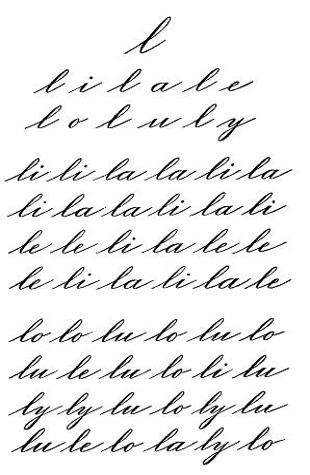 l
l i l a l e
l o l u l y
li li la la li la
li la la li la li
le le li la le le
le li la li la le
lo lo lu lo lu lo
lu le lu lo li lu
ly ly lu lo ly lu
lu le lo la ly lo